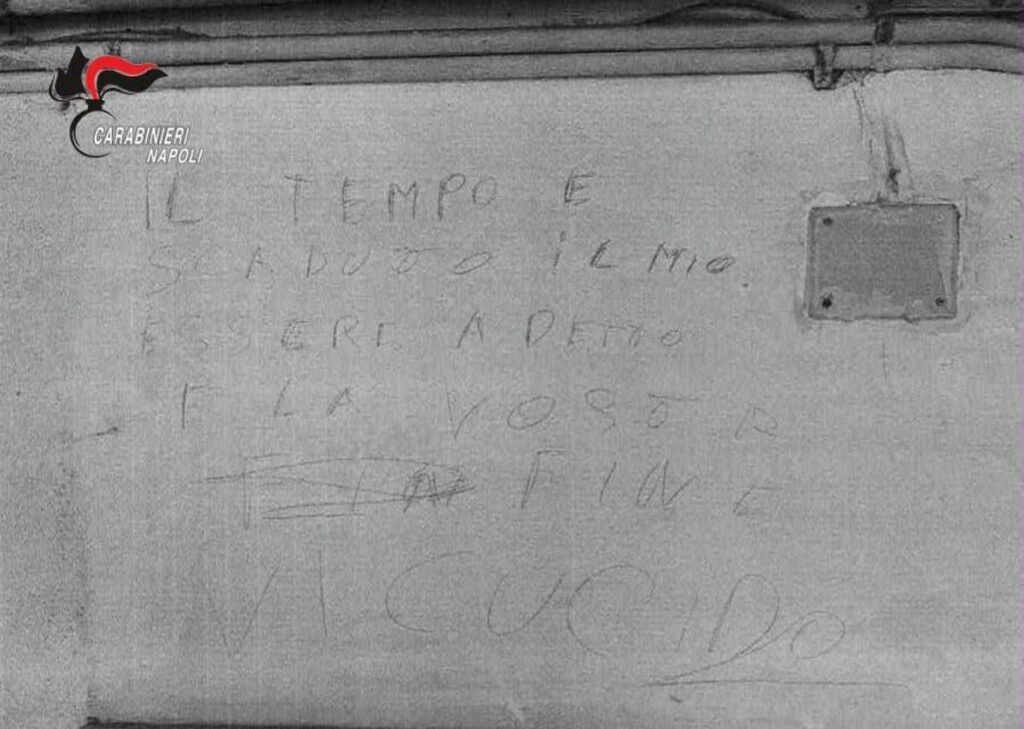 CARABINIERI
NAPOLI
IL TEMPO E
SCADUTO IL MIO
ESSERE A DETTO
E LA VOSTA
FIN FINE
VI CUCIDO